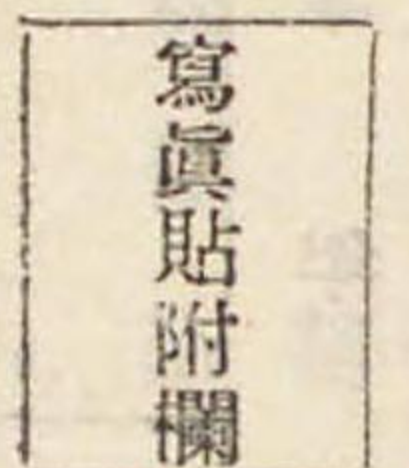 寫眞貼附欄